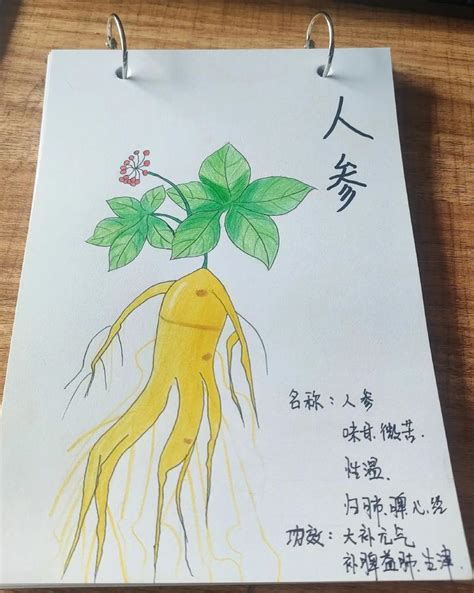 人参
名称：人参
味甘.微苦.
性温.
归肺.脾.心.经
功效：大补元气
补脾益肺.生津.